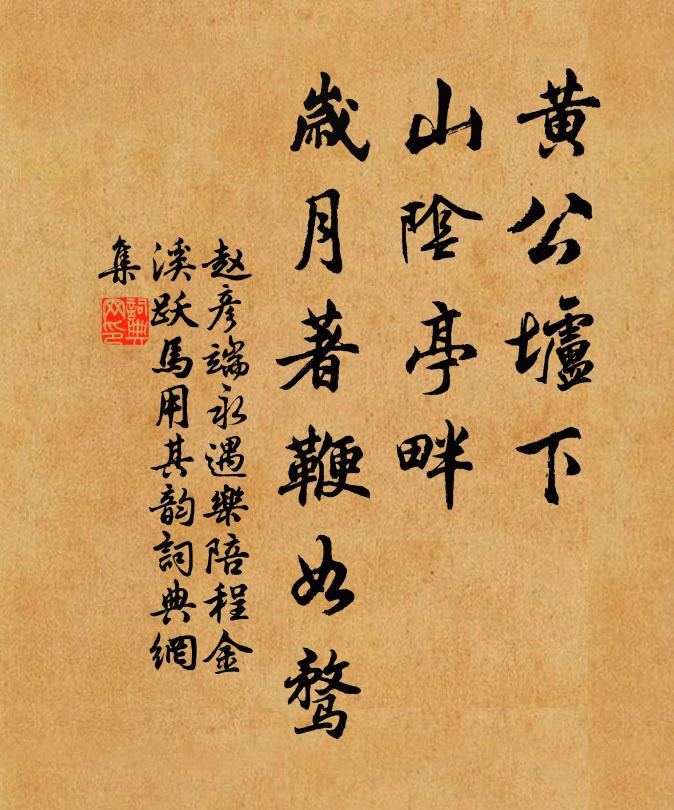 黄公壚下
山陰亭畔
歲月著鞭如鶩
赵彦端永遇樂陪程金
溪跃馬用其韵詞典網
集
詞典